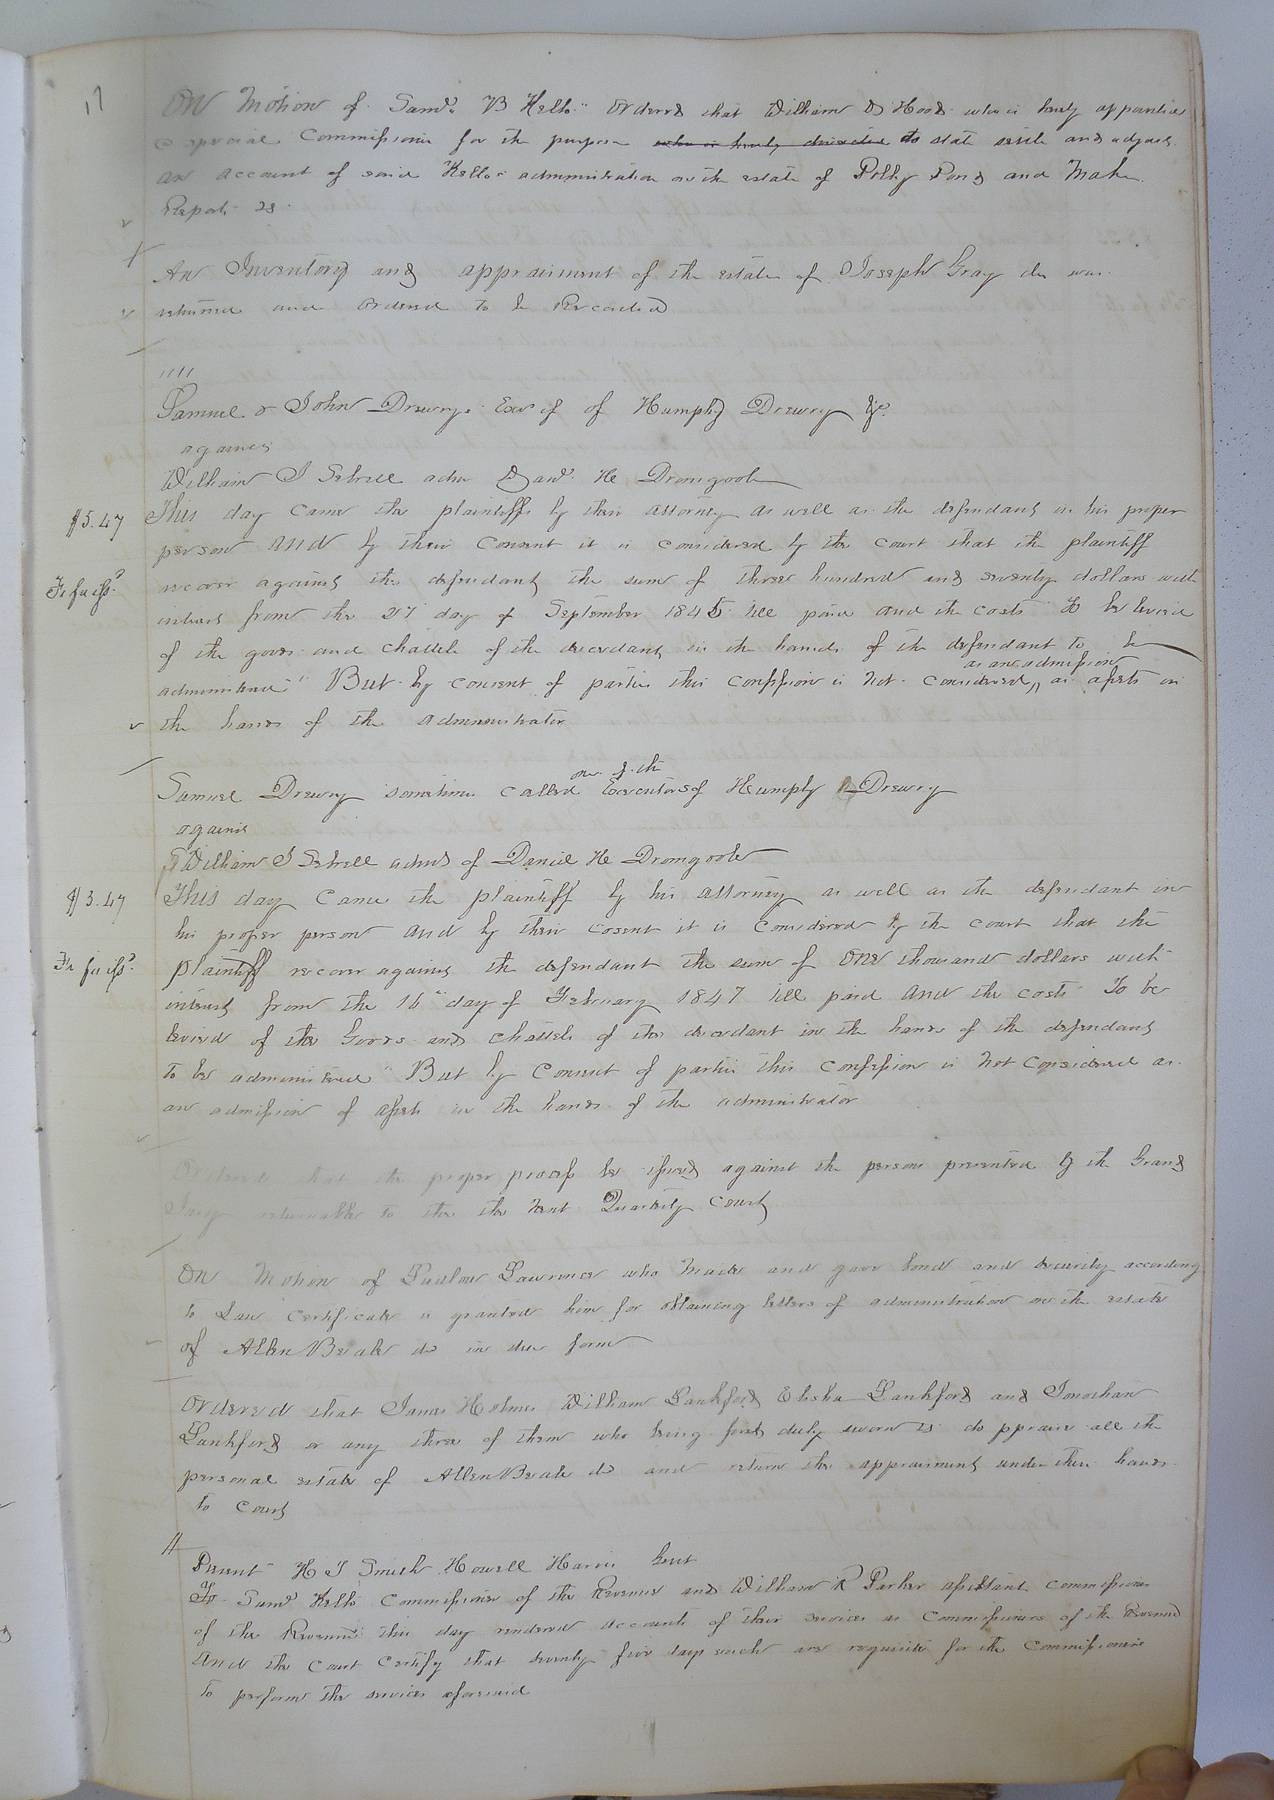 17
On Motion of Saml. B Kello Ordered that William D Hood who is hereby appointed
a special Commissioner for the purpose who is hereby directed to state settle and adjust
an account of said Kello's administration on the estate of Polly Pond and Make
Report &c.
An Inventory and appraisment of the estate of Joseph Gray dec was
returned and Ordered to be Recorded
Samuel & John Drewry Exors of of Humphy Drewry &c.
against
William J Sebrell admr Danl. H Dromgoole
$5.47
This day came the plaintiffs by their attorney as well as the defendant in his proper
person and by their Consent it is considered by the court that the plaintiff
Fi fa iss.
recover against the defendant the sum of three hundred and seventy dollars with
interest from the 27 day of September 1845 till paid and the costs To be levied
of the goods and chattels of the decedant in the hands of the defendant to be
administered" But by consent of parties this confession is Not Considered as an admission as assets in
the hands of the administrator
Samuel Drewry sometimes called one of the Executors of Humphy Drewry
against
William J Sebrell admr of Daniel H Dromgoole
$3.47
This day came the plaintiff by his attorney as well as the defendant in
his proper person and by their cosent it is considered by the court that the
Fi fa iss.
plaintiff recover against the defendant the sum of One thousand dollars with
interest from the 16th day of February 1847 till paid and the costs To be
levied of the Goods and chattels of the decedant in the hands of the defendant
to be administered" But by Consent of parties this confession is Not Considered as
an admission of assets in the hands of the administrator
Ordered that the proper process be issued against the persons presented by the Grand
Jury returnable to the the Next Quarterly Court
On Motion of Lawrence who Made and gave bond and security according
to Law Certificate is granted him for obtaining letters of administration on the estate
of Allen Beale dec in due form
Ordered that James Holmes William Lankford Elisha Lankford and Jonathan
Lankford or any three of them who being first duly sworn do ppraise all the
personal estate of Allen Beale dec and return the appraisment under their hands
to Court
Present H J Smith Howell Harris Gent
Saml. Kello Commissioner of the Revenue and William R Parker assistant commissioner
of the Revenue this day rendered accounts of their services as Commissioners of the Revenue
And the Court Certify that seventy five days each are requisite for the Commissioners
to perform the services aforesaid